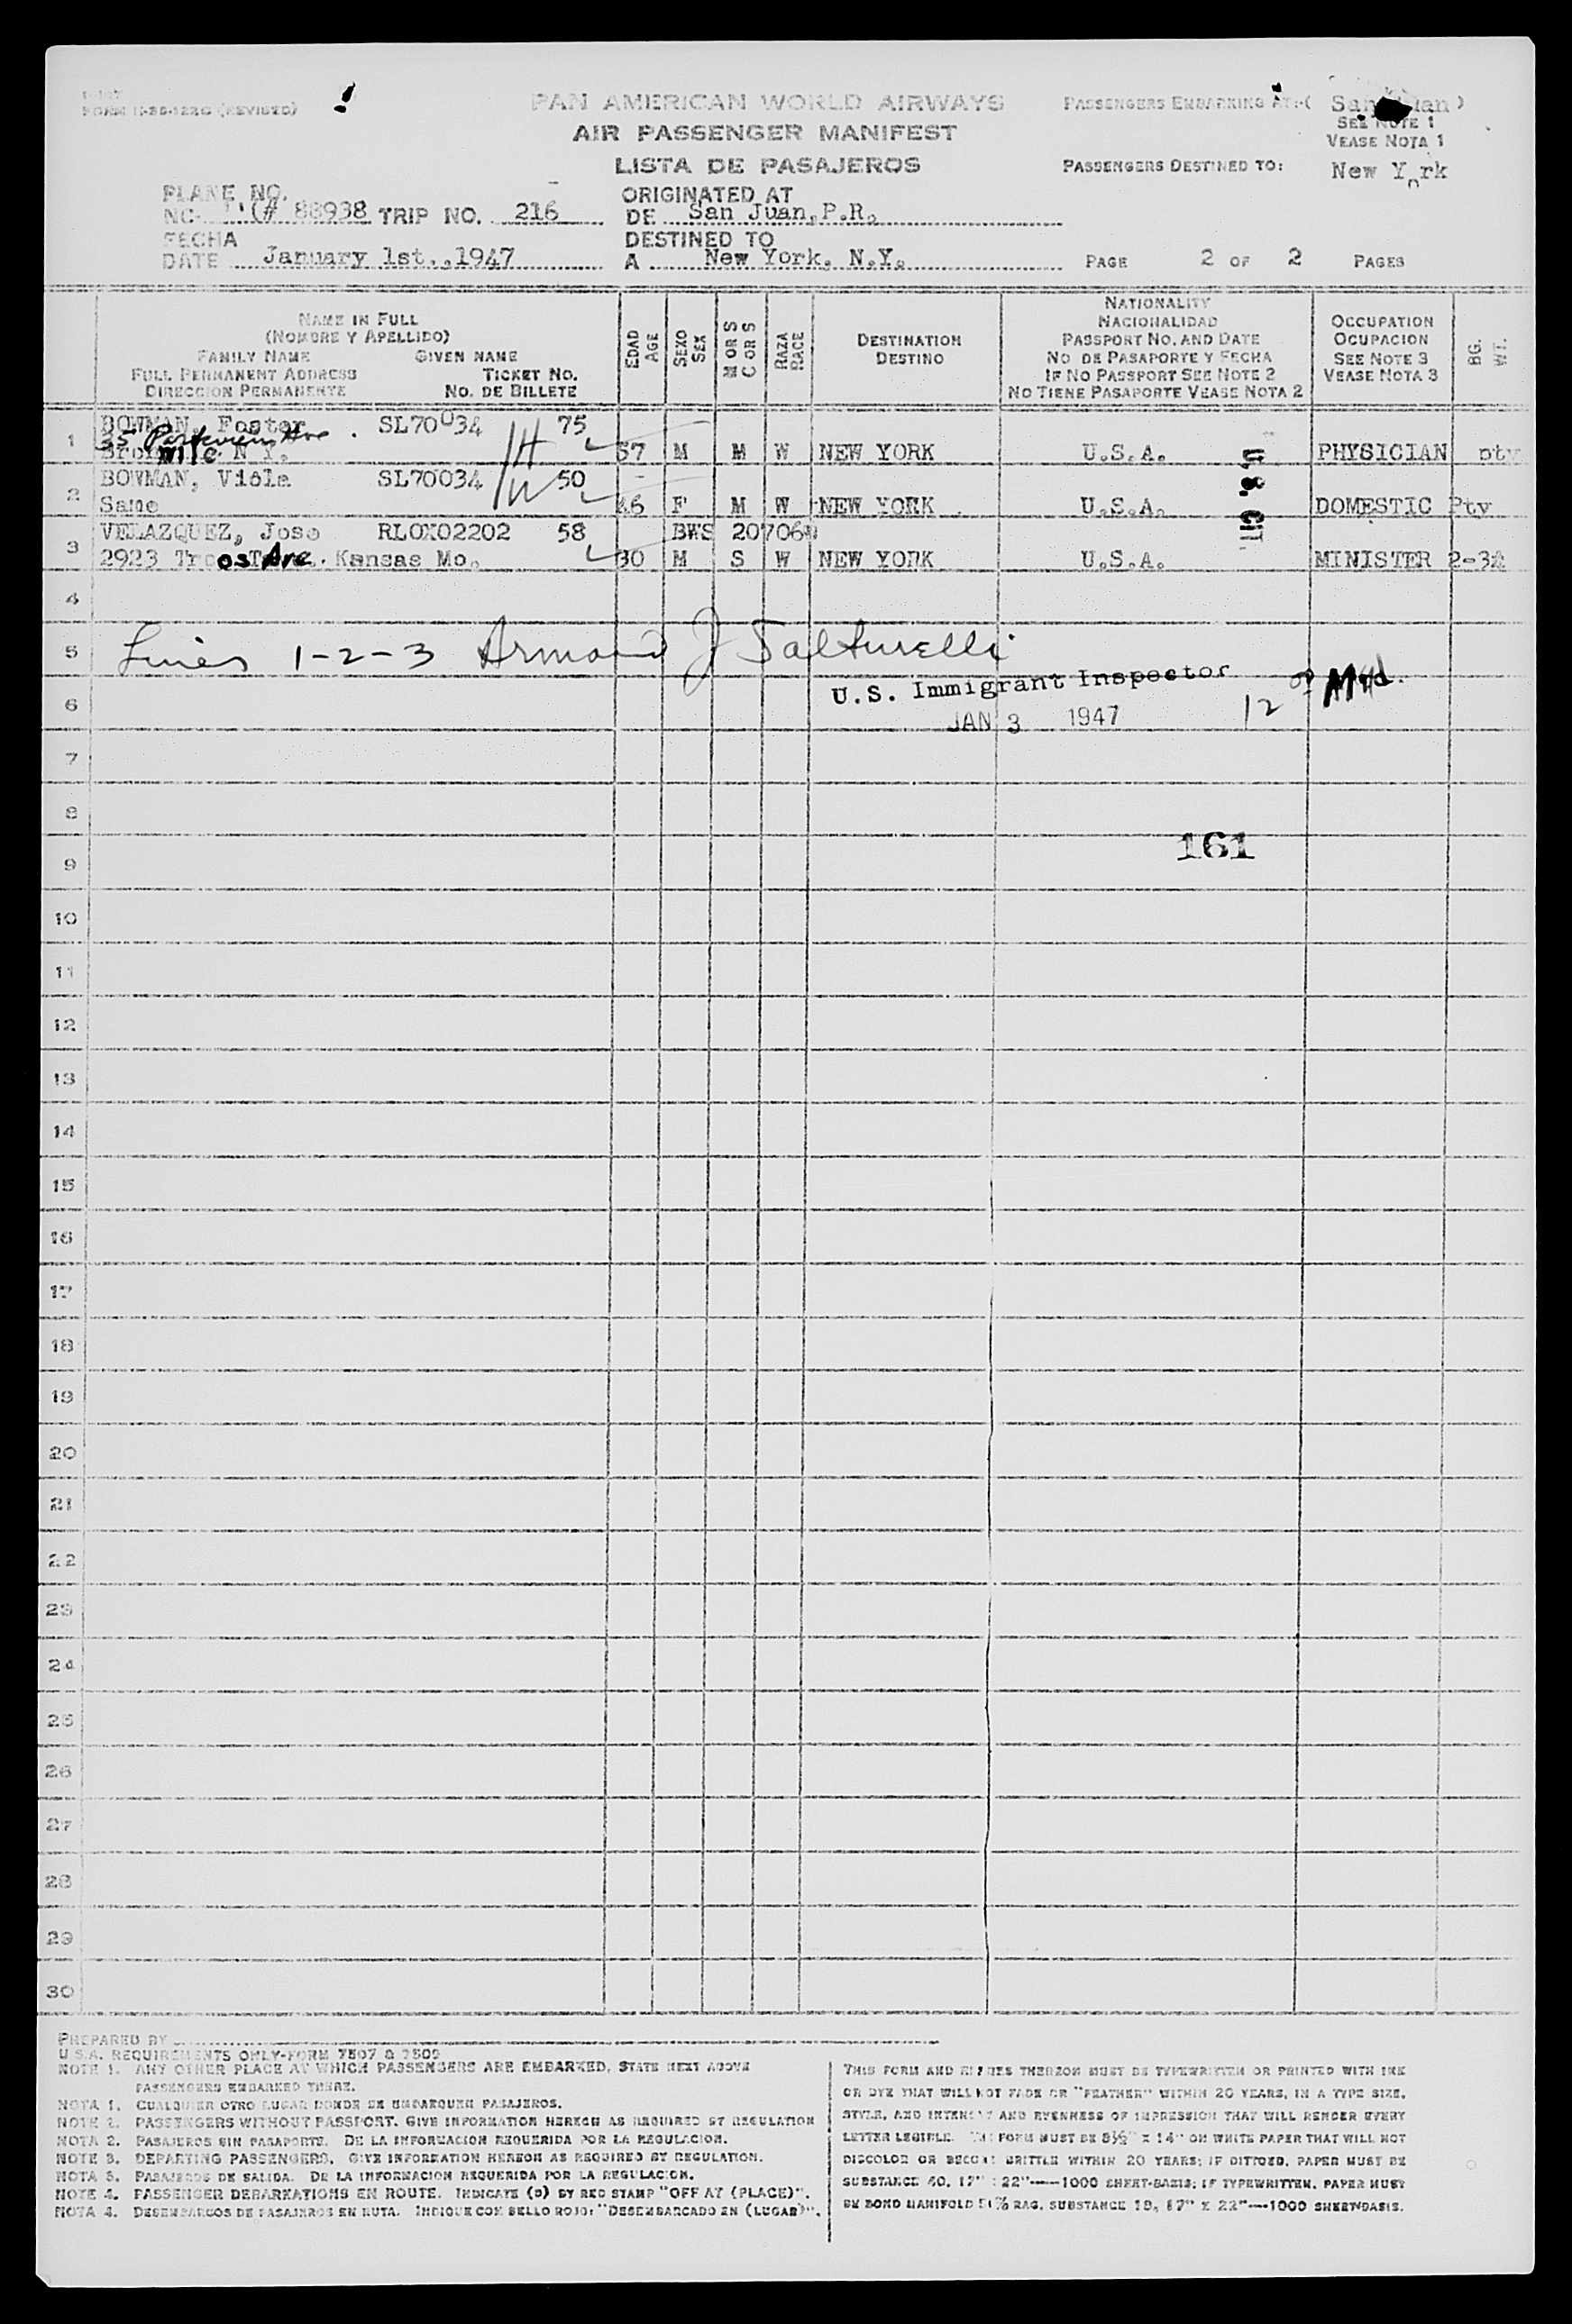 FORM (REVISED)
PAN AMERICAN WORLD AIRWAYS
AIR PASSENGER MANIFEST
LISTA DE PASAJEROS
PASSENGERS EMBARKING AT:( San )
SEE NOTE 1
VEASE NOTA 1
PASSENGERS DESTINED TO: New York
PLANE NO.
NC- 88938 TRIP NO. 216
ORIGINATED AT
DE San Juan, P.R.
FECHA
DATE January 1st., 1947
DESTINED TO
A New York, N.Y.
PAGE 2 OF 2 PAGES
NAME IN FULL
(NOMBRE Y APELLIDO)
FAMILY NAME GIVEN NAME
FULL PERMANENT ADDRESS TICKET NO.
DIRECCION PERMANENTE NO. DE BILLETE
EDAD
AGE
SEXO
SEX
M OR S
C OR S
RAZA
RACE
DESTINATION
DESTINO
NATIONALITY
NACIONALIDAD
PASSPORT NO. AND DATE
NO DE PASAPORTE Y FECHA
IF NO PASSPORT SEE NOTE 2
NO TIENE PASAPORTE VEASE NOTA 2
OCCUPATION
OCUPACION
SEE NOTE 3
VEASE NOTA 3
BG.
WT.
1 BOWMAN, Foster SL70034 75
35 Parkview Ave
N Y. 57 M M W NEW YORK U.S.A. PHYSICIAN pty
wife
2 BOWMAN, Viola SL70034 50
Same 46 F M W NEW YORK U.S.A. DOMESTIC Pty
H
W
U.S. CIT
3 VELAZQUEZ, Jose RLOX02202 58
2923 Troost Ave. Kansas Mo. 30 M S W NEW YORK U.S.A. MINISTER
4
5 Lines 1-2-3 Armand J Salturelli
U.S. Immigrant Inspector
6 JAN 3 1947 12
7
8
161
9
10
11
12
13
14
15
16
17
18
19
20
21
22
23
24
25
26
27
28
29
30
PREPARED BY
U.S.A. REQUIREMENTS ONLY-FORM 7507 & 7509
NOTE 1. ANY OTHER PLACE AT WHICH PASSENGERS ARE EMBARKED, STATE NEXT ABOVE
PASSENGERS EMBARKED THERE.
NOTA 1. CUALQUIER OTRO LUGAR DONDE SE EMBARQUEN PASAJEROS.
NOTE 2. PASSENGERS WITHOUT PASSPORT. GIVE INFORMATION HEREON AS REQUIRED BY REGULATION
NOTA 2. PASAJEROS SIN PASAPORTE. DE LA INFORMACION REQUERIDA POR LA REGULACION.
NOTE 3. DEPARTING PASSENGERS. GIVE INFORMATION HEREON AS REQUIRED BY REGULATION.
NOTA 3. PASAJEROS DE SALIDA. DE LA INFORMACION REQUERIDA POR LA REGULACION.
NOTE 4. PASSENGER DEBARKATIONS EN ROUTE. INDICATE (D) BY RED STAMP "OFF AT (PLACE)".
NOTA 4. DESEMBARCOS DE PASAJEROS EN RUTA. INDIQUE CON SELLO ROJO: "DESEMBARCADO EN (LUGAR)".
THIS FORM AND ENTRIES THEREON MUST BE TYPEWRITTEN OR PRINTED WITH INK
OR DYE THAT WILL NOT FADE OR "FEATHER" WITHIN 20 YEARS, IN A TYPE SIZE,
STYLE, AND INTENSITY AND EVENNESS OF IMPRESSION THAT WILL RENDER EVERY
LETTER LEGIBLE. THIS FORM MUST BE 8½" X 14" ON WHITE PAPER THAT WILL NOT
DISCOLOR OR BECOME BRITTLE WITHIN 20 YEARS; IF DITTOED, PAPER MUST BE
SUBSTANCE 40, 17" X 22"——1000 SHEET-BASIS; IF TYPEWRITTEN, PAPER MUST
BE BOND MANIFOLD 50% RAG, SUBSTANCE 18, 17" X 22"——1000 SHEET-BASIS.